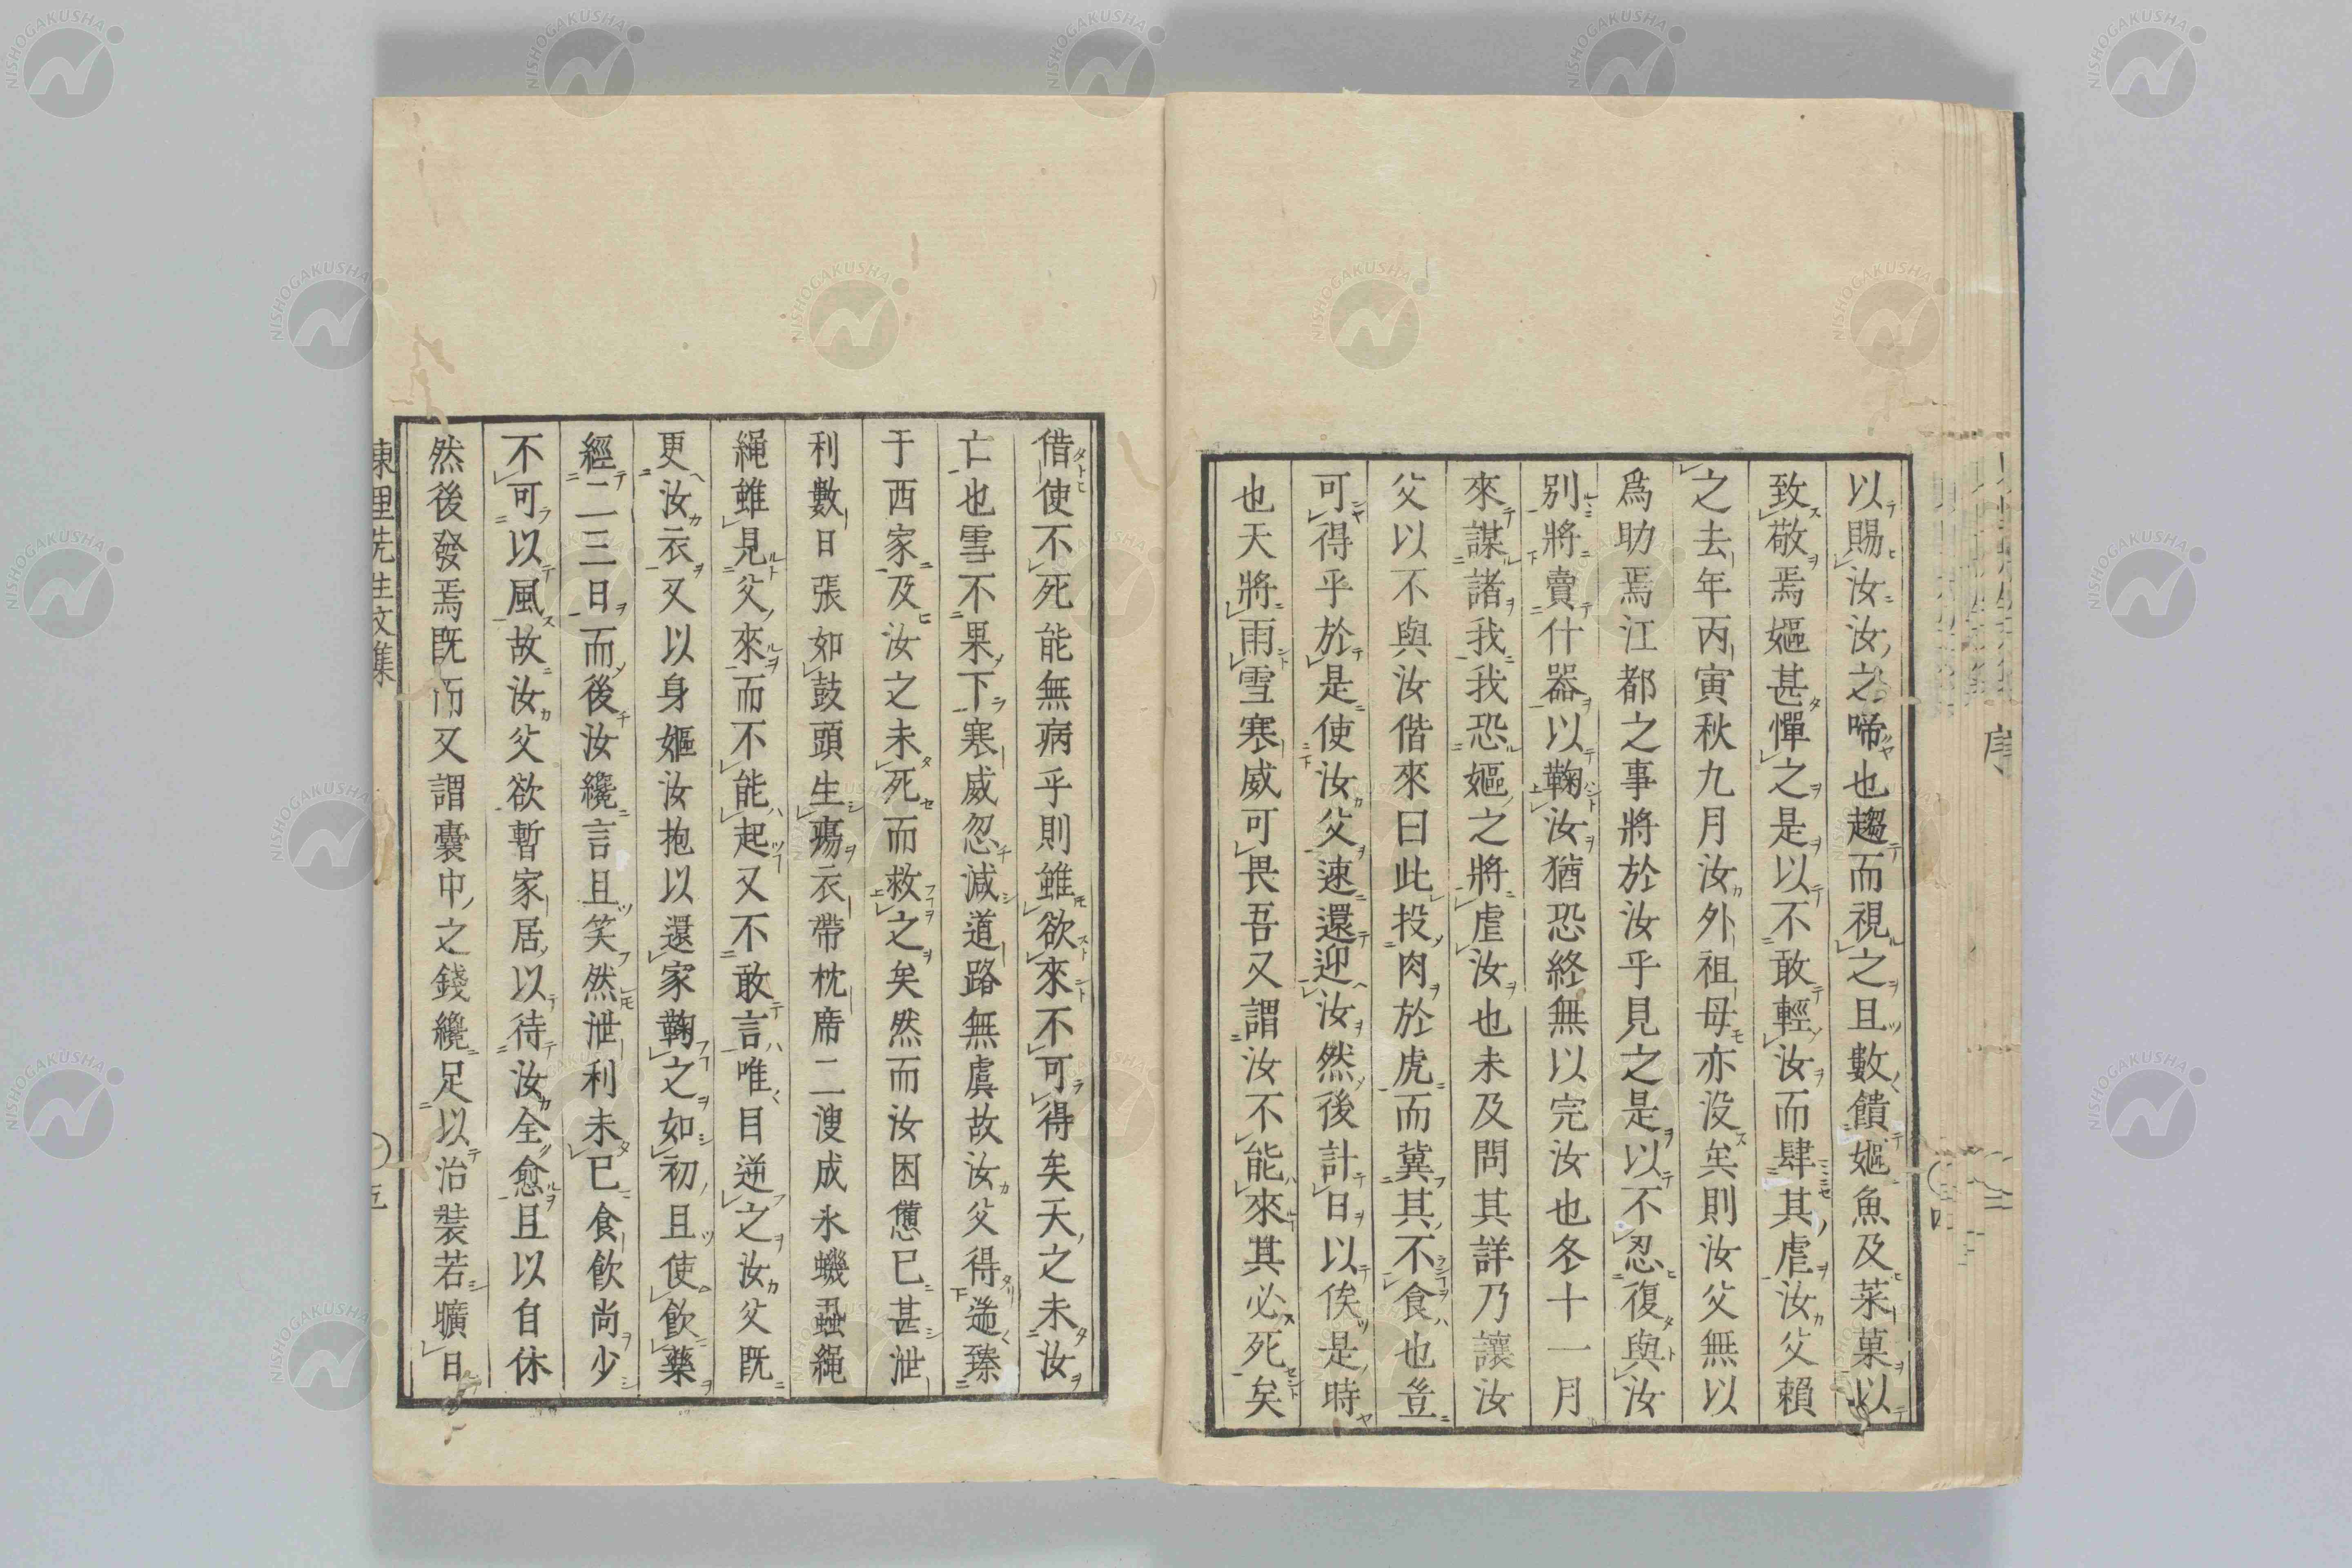 以賜汝汝之啼也趨而視之且數饋嫗魚及菜菓以
致敬焉嫗甚憚之是以不敢輕汝而肆其虐汝父賴
之去年丙寅秋九月汝外祖母亦没矣則汝父無以
爲助焉江都之事將於汝乎見之是以不忍復與汝
別將賣什器以鞠汝猶恐終無以完汝也冬十一月
來謀諸我我恐嫗之將虐汝也未及問其詳乃讓汝
父以不與汝偕來曰此投肉於虎而冀其不食也豈
可得乎於是使汝父速還迎汝然後計日以俟是時
也天將雨雪寒威可畏吾又謂汝不能來其必死矣
借使不死能無病乎則雖欲來不可得矣天之未汝
亡也雪不果下寒威忽減道路無虞故汝父得迤臻
于西家及汝之未死而救之矣然而汝困憊已甚泄
利數日張如鼓頭生瘍衣帶枕席二溲成氷蟣蝨繩
繩雖見父來而不能起又不敢言唯目逆之汝父既
更汝衣又以身嫗汝抱以還家鞠之如初且使飲藥
經二三日而後汝纔言且笑然泄利未已食飲尚少
不可以風故汝父欲暫家居以待汝全愈且以自休
然後發焉既而又謂囊中之錢纔足以治裝若曠日
東里先生文集
序
NISHOGAKUSHA